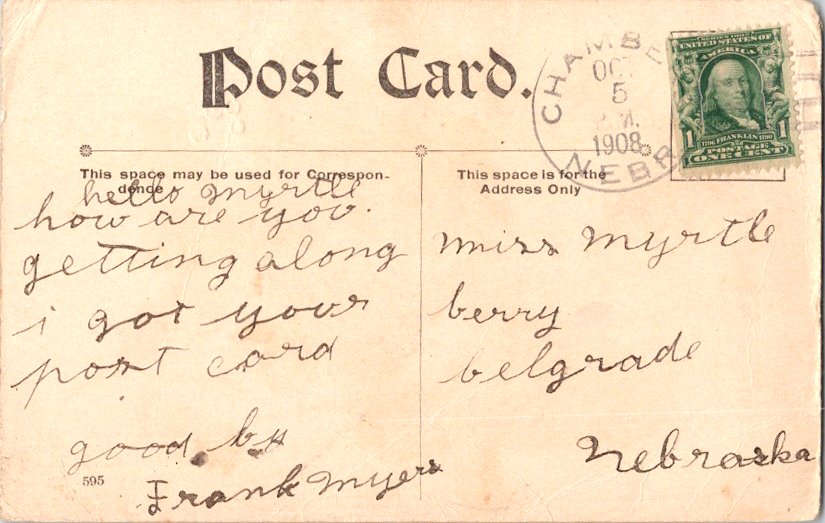 Post Card.
CHAMBE
OCT
5
P.M.
1908
NEBR
SERIES 1902
UNITED STATES OF
AMERICA
1 1706 FRANKLIN 1790 1
POSTAGE
ONE CENT
This space may be used for Correspon-
dence
hello myrtle
how are you.
getting along
i got your
post card
good by
Frank myers
595
This space is for the
Address Only
miss myrtle
berry
belgrade
Nebraska